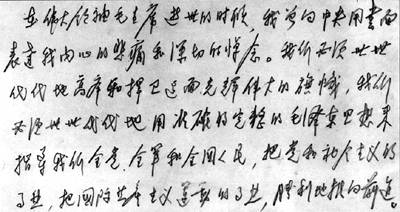 在伟大领袖毛主席逝世的时候，我曾向中央用书面
表达我内心的悲痛和深切的悼念。我们必须世世
代代地高举和捍卫这面光辉伟大的旗帜，我们
必须世世代代地用准确的完整的毛泽东思想来
指导我们全党、全军和全国人民，把党和社会主义的
事业，把国际共产主义运动的事业，胜利地推向前进。